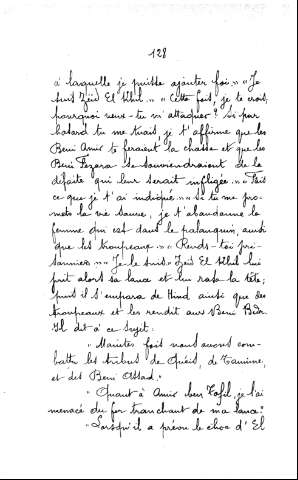 128
à laquelle je puisse ajouter foi." "Je
suis Zeïd El Khil." "Cette fois, je te crois,
pourquoi veux-tu m'attaquer? Si par
hasard tu me tuais je t'affirme que les
Beni Amir te feraient la chasse et que les
Beni Fezara se souviendraient de la
défaite qui leur serait infligée." "Fais
ce que je t'ai indiqué." "Si tu me pro-
mets la vie sauve, je t'abandonne la
femme qui est dans le palanquin, ainsi
que les troupeaux." "Rends-toi pri-
sonnier." "Je le suis." Zeïd El Khil lui
prit alors sa lance et lui rasa la tête;
puis il s'empara de Hind ainsi que des
troupeaux et les rendit aux Beni Bedr.
Il dit à ce sujet:
"Maintes fois nous avons com-
battu les tribus de Queïs, de Tamime,
et des Beni Assad."
"Quant à Amir ben Tofil, je l'ai
menacé du fer tranchant de ma lance."
"Lorsqu'il a prévu le choc d'El